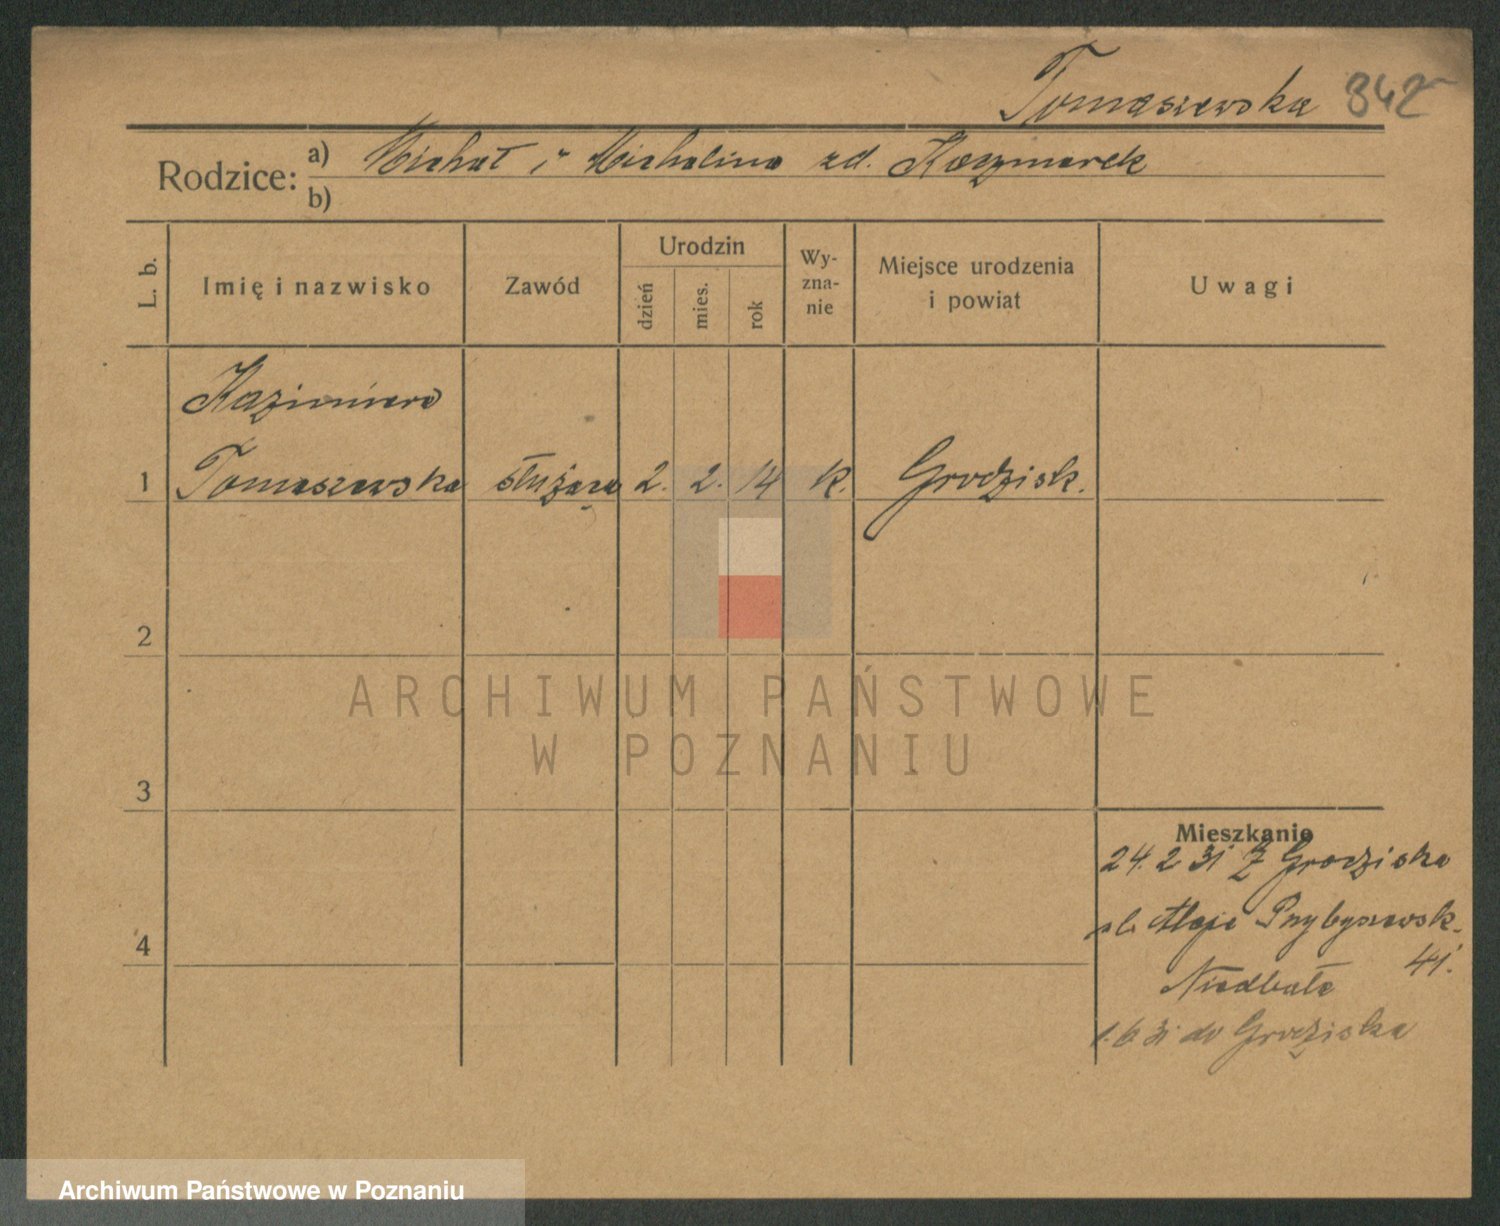 Tomaszewska 342
Rodzice: a) Michał i Michalina zd. Kaczmarek
b)
L. b.
Imię i nazwisko
Zawód
Urodzin
dzień
mies.
rok
Wy-
zna-
nie
Miejsce urodzenia
i powiat
Uwagi
Kazimiera
1 Tomaszewska służąca 2. 2. 14 k. Grodzisk.
2
3
4
Mieszkanie
24. 2 31 Z Grodziska
Aleje Przybyszewsk.
41.
Niedbała
1. 6 31 do Grodziska
ARCHIWUM PAŃSTWOWE
W POZNANIU
Archiwum Państwowe w Poznaniu